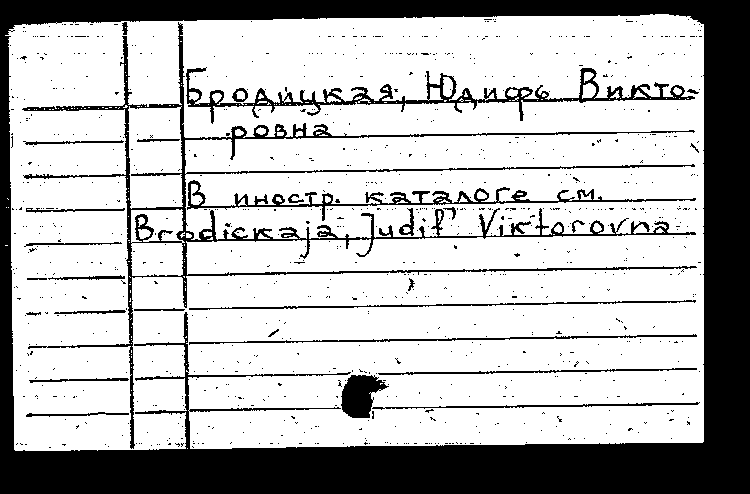 Бродицкая, Юдифь Викто-
ровна
В иностр. каталоге см.
Brodickaja, Judif' Viktorovna